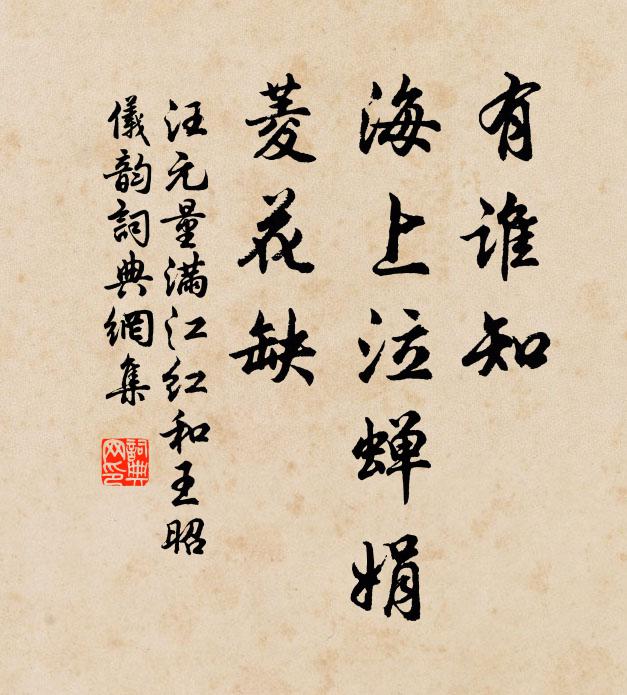 有谁知
海上泣蝉娟
菱花缺
汪元量满江红和王昭
儀韵詞典網集
詞典网印